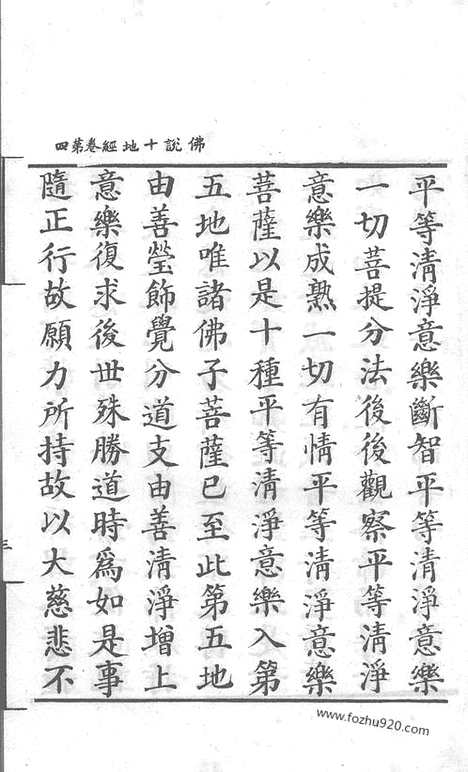 佛說十地經卷第四
平等清淨意樂斷智平等清淨意樂
一切菩提分法後後觀察平等清淨
意樂成熟一切有情平等清淨意樂
菩薩以是十種平等清淨意樂入第
五地唯諸佛子菩薩已至此第五地
由善瑩飾覺分道支由善清淨增上
意樂復求後世殊勝道時為如是事
隨正行故願力所持故以大慈悲不
三
www.fozhu920.com